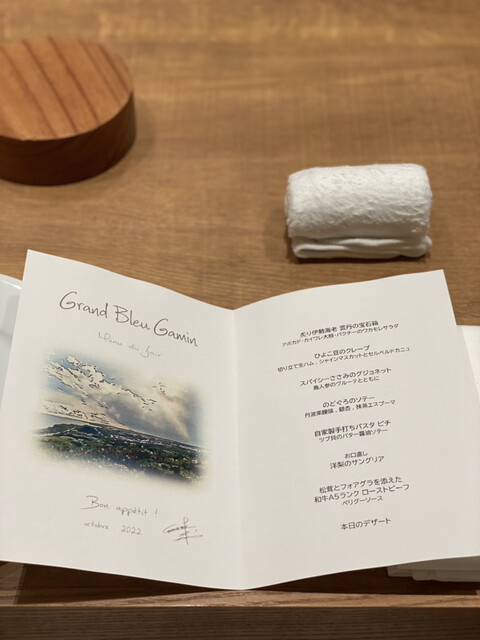 Grand Bleu Gamin
Menu du jour
Bon appétit !
octobre 2022
炙り伊勢海老 雲丹の宝石箱
アボカド・カイワレ大根・パクチーのワカモレサラダ
ひよこ豆のクレープ
切り立て生ハム , シャインマスカットとセルベルドカニュ
スパイシーささみのグジョネット
島人参のヴルーテとともに
のどぐろのソテー
丹波栗饅頭 , 銀杏 , 抹茶エスプーマ
自家製手打ちパスタ ピチ
ツブ貝のバター醤油ソテー
お口直し
洋梨のサングリア
松茸とフォアグラを添えた
和牛A5ランク ローストビーフ
ペリグーソース
本日のデザート